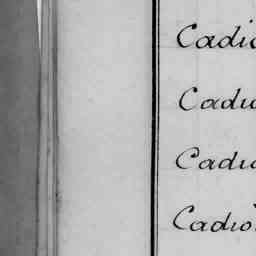 Cadio
Cadio
Cadio
Cadio